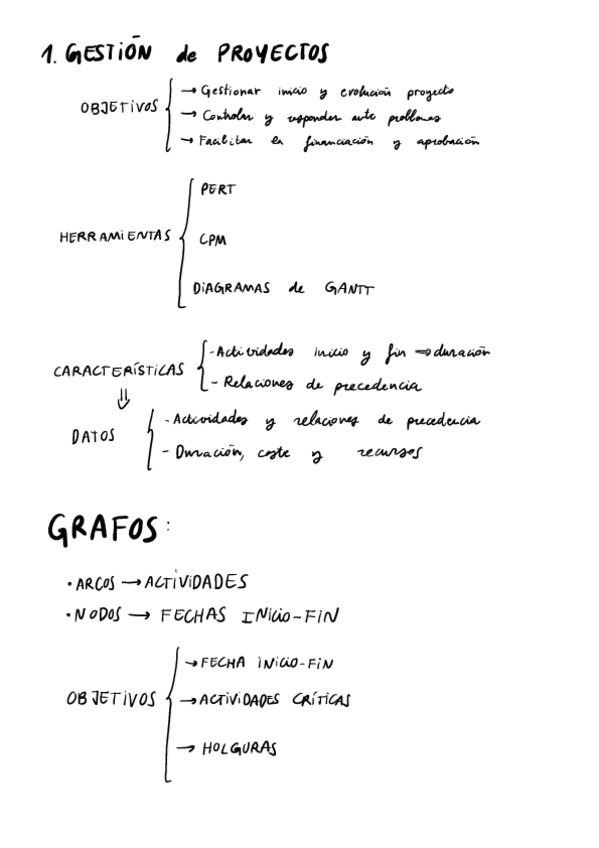 1. GESTIÓN de PROYECTOS
OBJETIVOS
→ Gestionar inicio y evolución proyecto
→ Controlar y responder ante problemas
→ Facilitar la financiación y aprobación
HERRAMIENTAS
PERT
CPM
DIAGRAMAS de GANTT
CARACTERÍSTICAS
- Actividades inicio y fin ⇒ duración
- Relaciones de precedencia
⇓
DATOS
- Actividades y relaciones de precedencia
- Duración, coste y recursos
GRAFOS:
• ARCOS → ACTIVIDADES
• NODOS → FECHAS INICIO-FIN
OBJETIVOS
→ FECHA INICIO-FIN
→ ACTIVIDADES CRÍTICAS
→ HOLGURAS